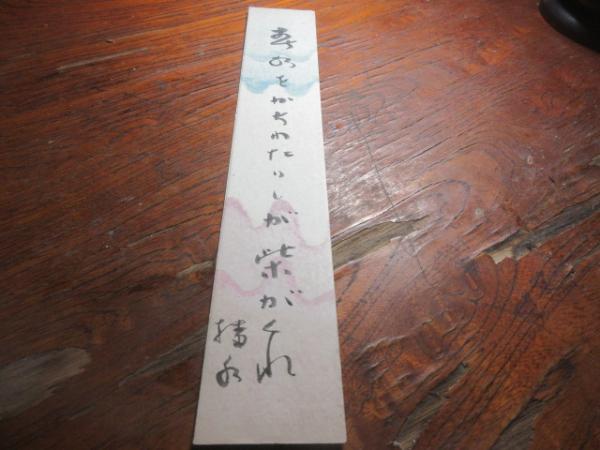 春水をかちわたりしが柴がくれ
播水